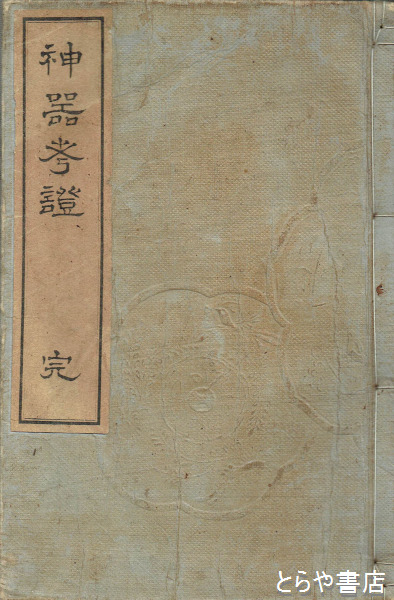 神器考證
完
とらや書店